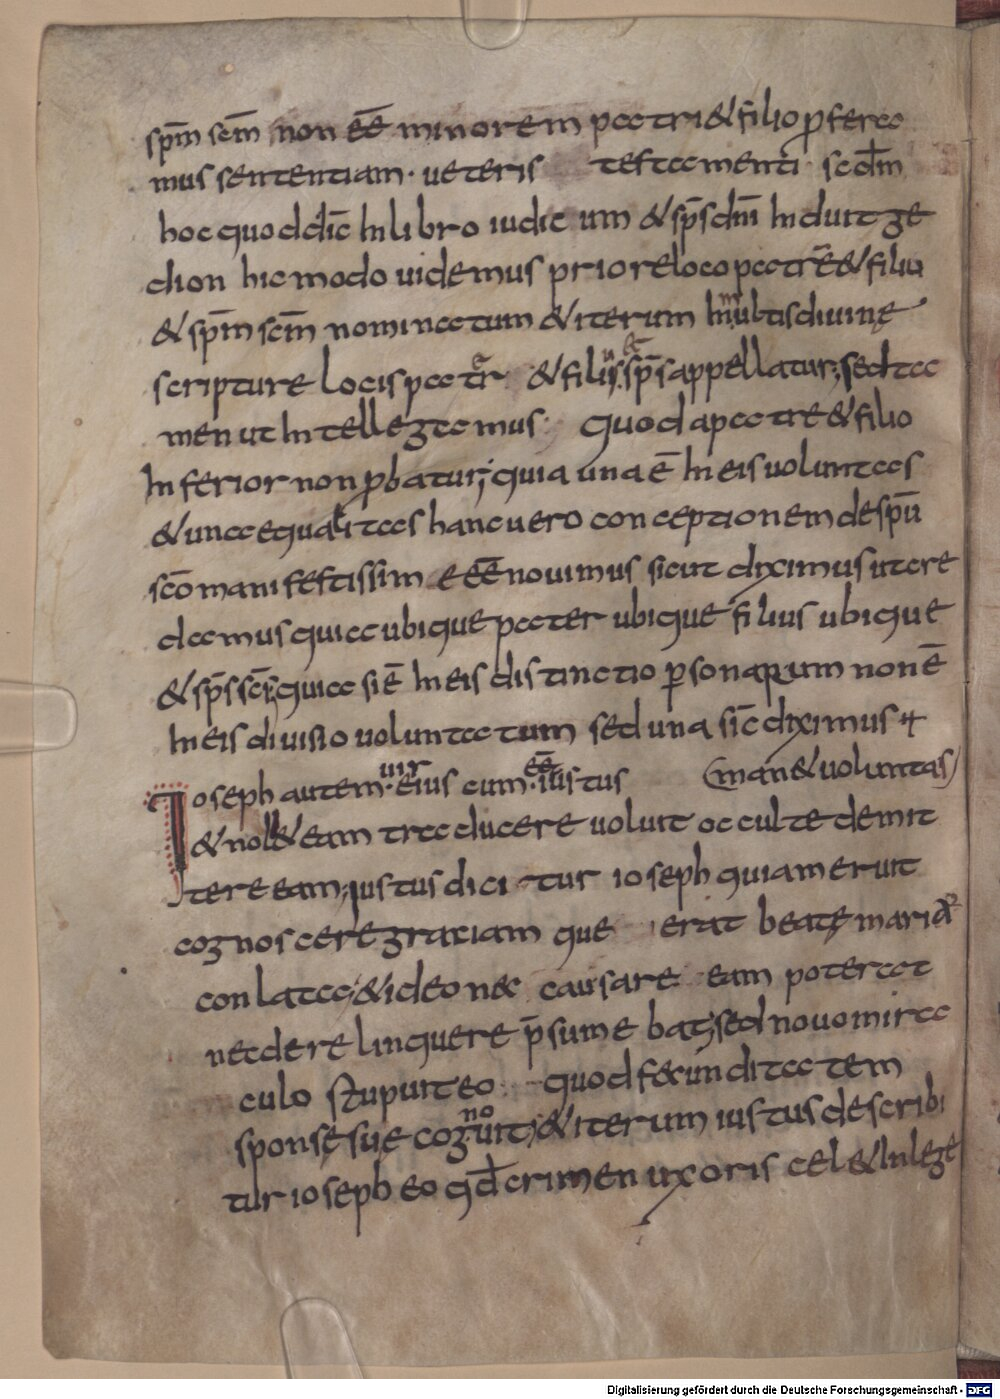 sp̄m scm̄ non ēē minorem patri & filio p̱feren
mus sententiam· ueteris testamenti· scdm̄
hoc quod dic̄ In libro iudic um & sp̄s dnī Induit ge
dion hic modo uidemus priore loco patrē & filiu
& sp̄m scm̄ nominatum & iterum In multis diuinę
scripturę locis pater & filius & sp̄s appellatur; sed ta
men ut Intellegamus· quod a patre & filio
Inferior non p̱batur; quia una ē In eis uoluntas
& una equalitas hanc uero conceptionem de spū
scō manifestissim e ēē nouimus sicut diximus ut cre
damus quia ubique pater ubique filius ubique
& sp̄s scs̄; quia si ē In eis distinctio p̱sonarum non ē
In eis diuisio uoluntatum sed una sīc diximus +
Ioseph autem· uir eius cum· ēē iustus (man& uoluntas)
& noll& eam traducere uoluit occulte demit
tere eam; iustus dici tur ioseph quia meruit
cognoscere graciam que erat beatę mariae
conlata; & ideo nec causare eam poterat
nec derelinquere p̄sume bat; sed nouo mira
culo stupuit eo quod fecunditatem
sponsę suę cog·no·uit; & iterum iustus describi
tur ioseph eo qd̄ crimen uxoris cel& In lege